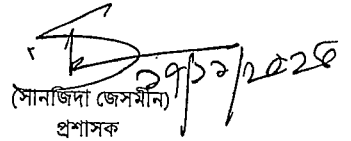 ২৭/১১/২০২৫
(সানজিদা জেসমীন)
প্রশাসক